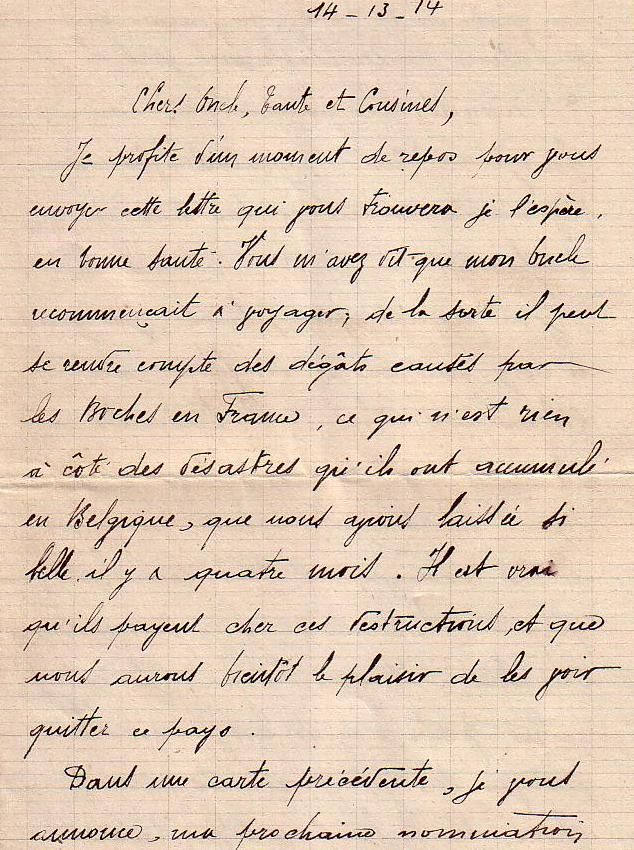 14 - 13 - 14
Chers Oncle, Tante et Cousines,
Je profite d'un moment de repos pour vous
envoyer cette lettre qui vous trouvera je l'espère,
en bonne santé. Vous m'avez dit que mon Oncle
recommençait à voyager, de la sorte il peut
se rendre compte des dégâts causés par
les Boches en France, ce qui n'est rien
à côté des désastres qu'ils ont accumulé
en Belgique, que nous avions laissée si
belle il y a quatre mois. Il est vrai
qu'ils payent cher ces destructions, et que
nous aurons bientôt le plaisir de les voir
quitter ce pays.
Dans une carte précédente, je vous
annonce, ma prochaine nomination